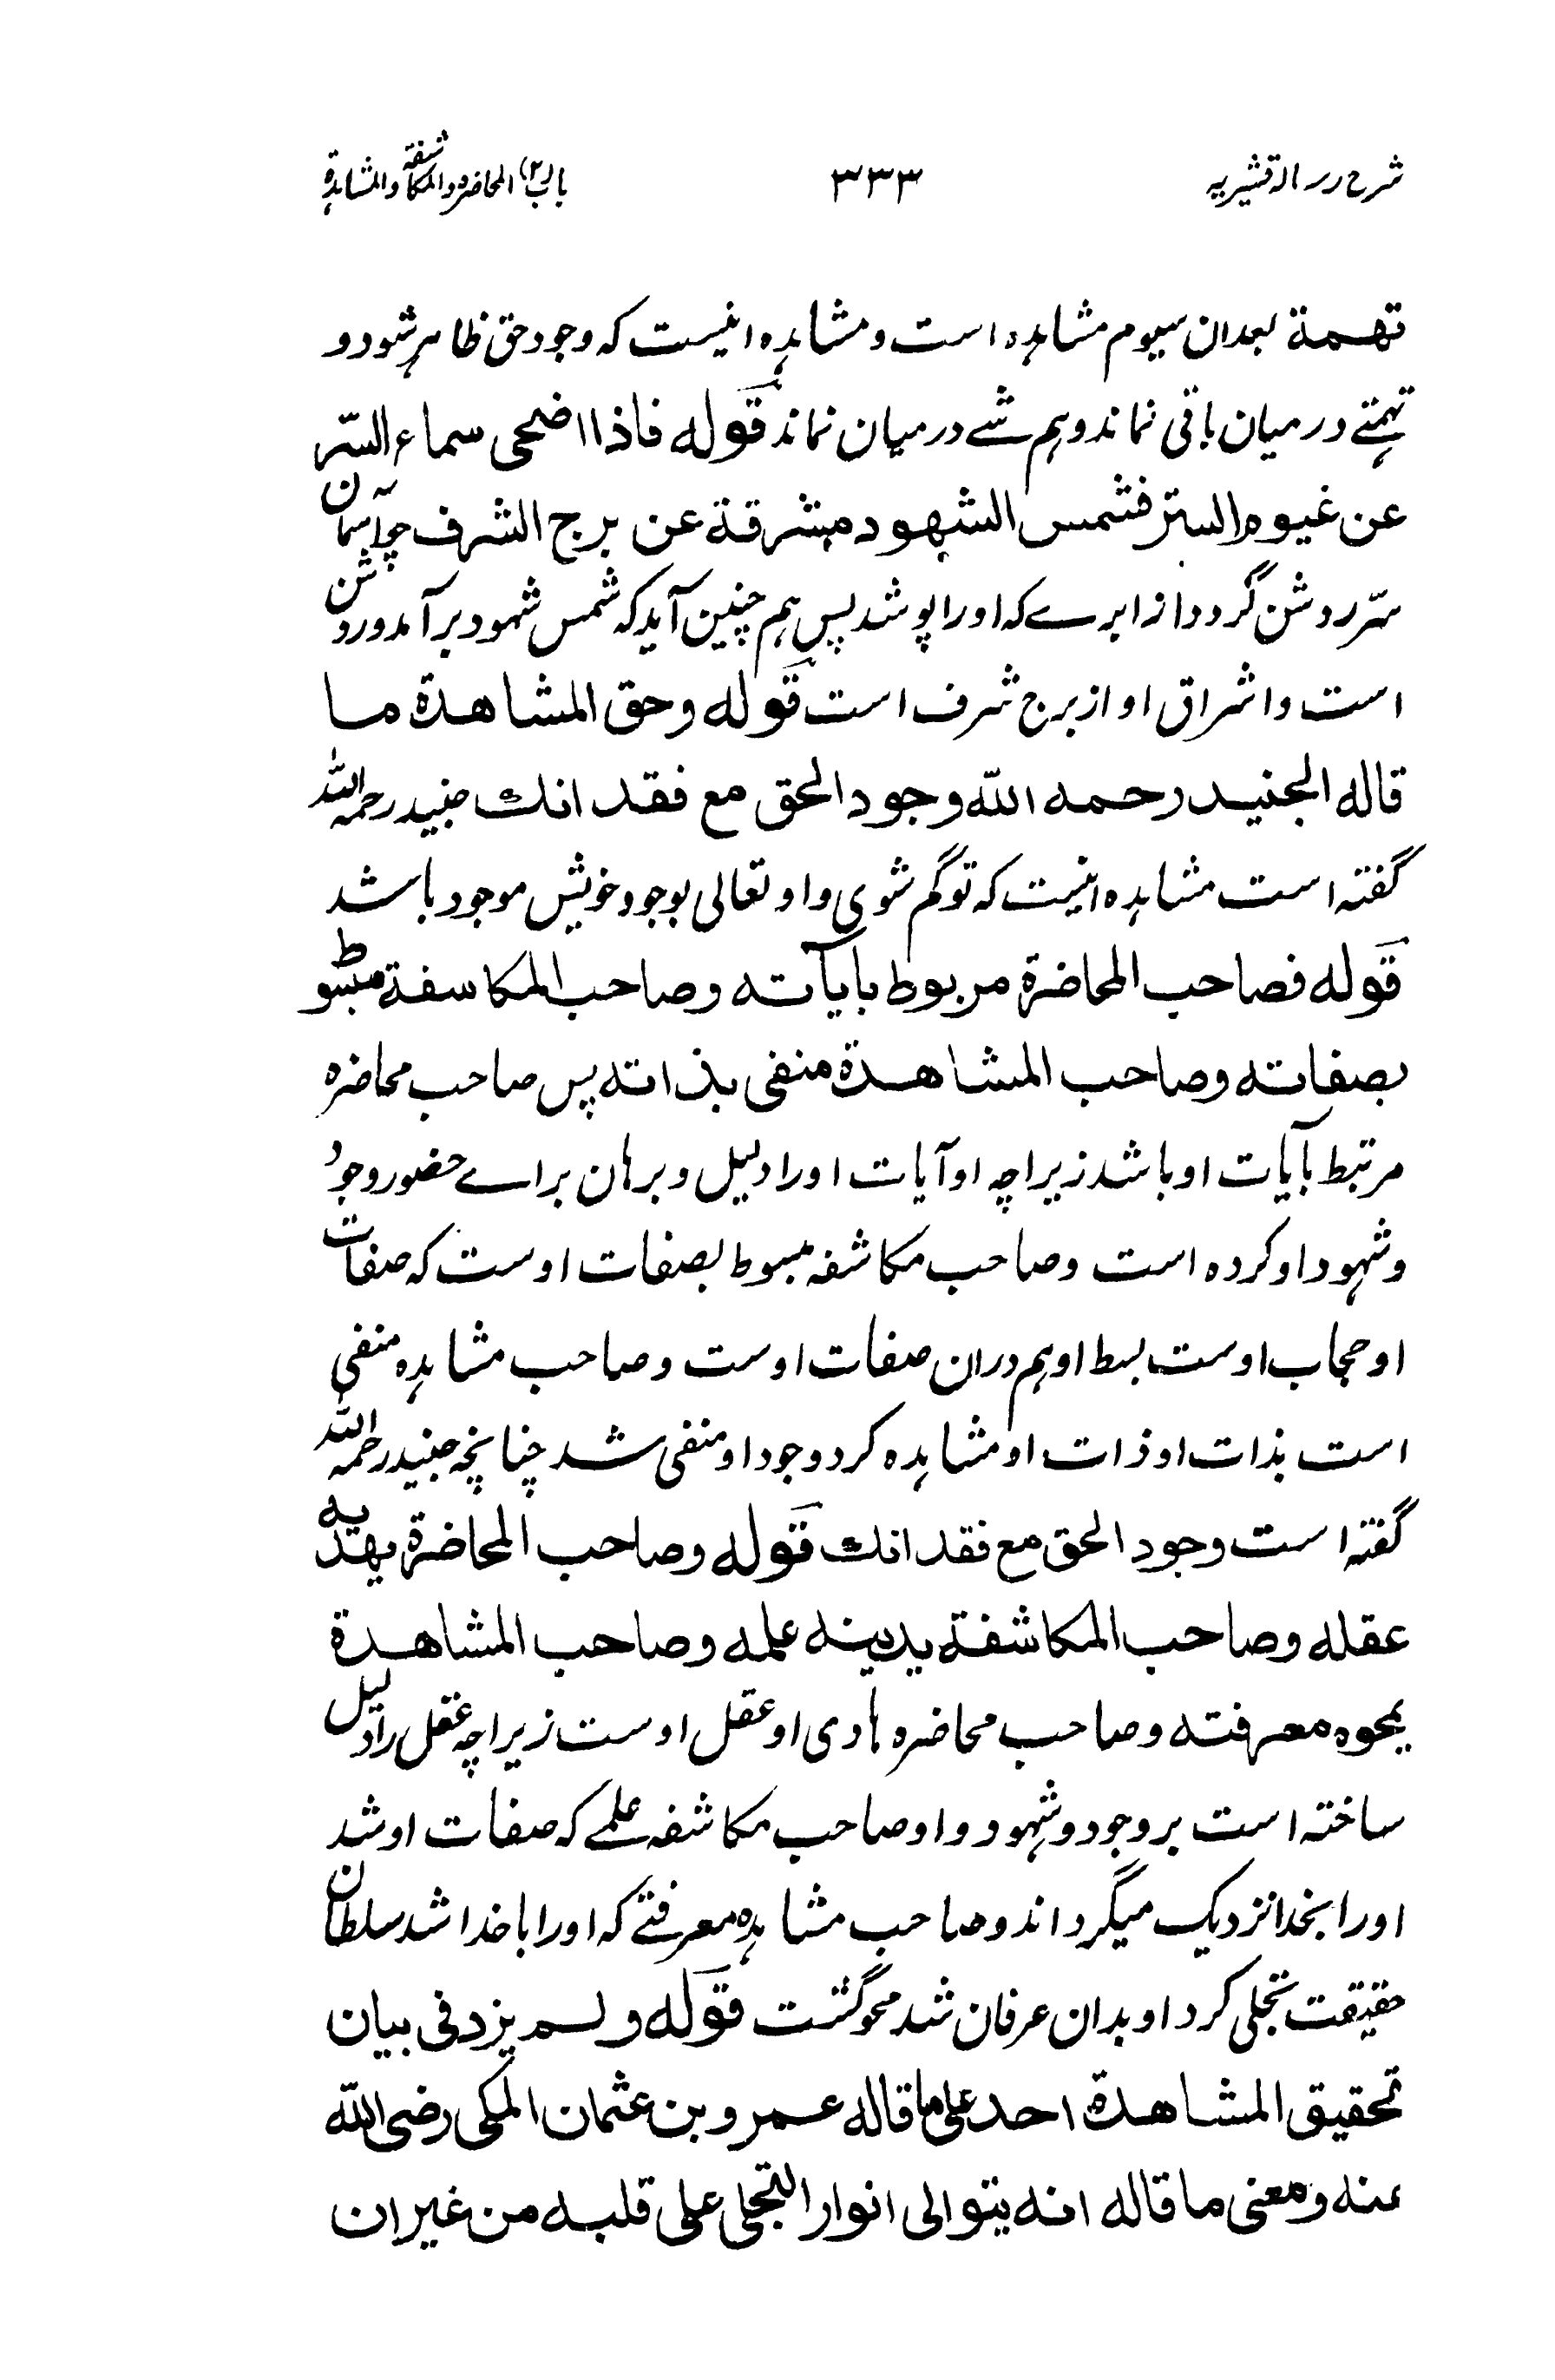 شرح رسالہ قشیریہ ۳۳۳ باب(۲) المحاضرہ والمکاشفۃ والمشاہدۃ
تهمة بعدان سیوم مشاہدہ است و مشاہدہ اینست کہ وجود حق ظاہر شود و
تہمتے درمیان باقی نماند وہم شے درمیان نماند قوله فاذا اضحى سماء السّر
عن غیوم الستر فشمس الشهود مشرقة عن برج الشرف چوں آسمان
سّر روشن گردد از ابرے کہ اورا پوشد پس ہم چنین آید کہ شمس شہود برآمد و روشن
است و اشراق او از برج شرف است قوله وحق المشاهدة ما
قاله الجنید رحمه الله وجود الحق مع فقدانك جنید رحمہ اللہ
گفتہ است مشاہدہ اینست کہ تو گم شوی و او تعالی بوجود خویش موجود باشد
قوله فصاحب المحاضرة مربوط بایآته وصاحب المکاسفة مبسوط
بصفاته وصاحب المشاهدة منفی بذاته پس صاحب محاضرہ
مرتبط بآیات او باشد زیراچہ او آیات اورا دلیل و برہان براے حضور وجود
و شہود او کردہ است وصاحب مکاشفہ مبسوط بصفات اوست کہ صفات
او حجاب اوست بسط او ہم دران صفات اوست وصاحب مشاہدہ منفی
است بذات او ذات او مشاہدہ کرد وجود او منفی شد چنانچہ جنید رحمہ اللہ
گفتہ است وجود الحق مع فقدانك قوله وصاحب المحاضرة یهدیه
عقله وصاحب المکاشفة یدنیه علمه وصاحب المشاهدة
یمحوه معرفته وصاحب محاضرہ ہادی او عقل اوست زیراچہ عقل را دلیل
ساختہ است بر وجود و شہود و او صاحب مکاشفہ علمے کہ صفات او شد
اورا بخدا نزدیک میگرداند وصاحب مشاہدہ معرفتے کہ اورا با خدا شد سلطان
حقیقت تجلی کرد او بدان عرفان شد محو گشت قوله ولم یزد فی بیان
تحقیق المشاهدة احد علی ما قاله عمرو بن عثمان المکی رضی الله
عنه ومعنی ما قاله انه یتوالی انوار التجلی علی قلبه من غیر ان